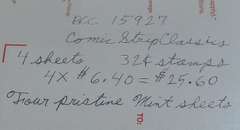 BCC 15927
Comic Strip Classics
4 sheets 32¢ stamps
4 x $6.40 = $25.60
Four pristine Mint sheets